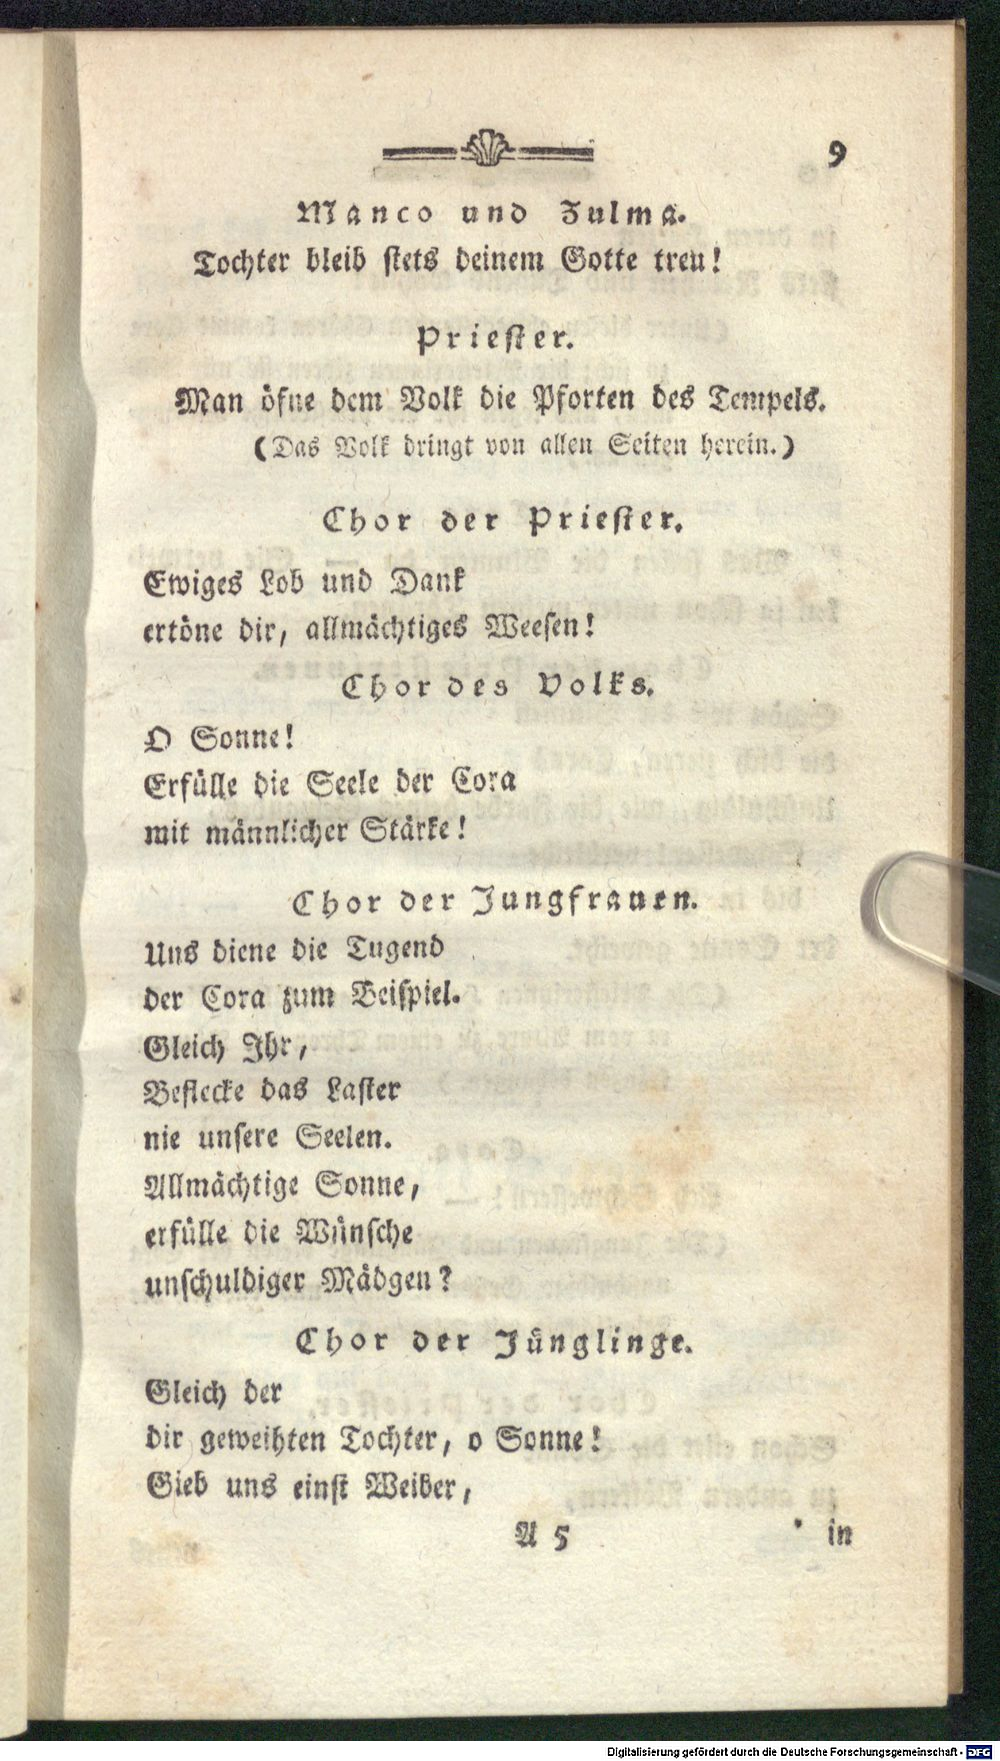 9
Manco und Zulma.
Tochter bleib stets deinem Gotte treu!
Priester.
Man öfne dem Volk die Pforten des Tempels.
(Das Volk dringt von allen Seiten herein.)
Chor der Priester.
Ewiges Lob und Dank
ertöne dir, allmächtiges Weesen!
Chor des Volks.
O Sonne!
Erfülle die Seele der Cora
mit männlicher Stärke!
Chor der Jungfrauen.
Uns diene die Tugend
der Cora zum Beispiel.
Gleich Ihr,
Beflecke das Laster
nie unsere Seelen.
Allmächtige Sonne,
erfülle die Wünsche
unschuldiger Mädgen?
Chor der Jünglinge.
Gleich der
dir geweihten Tochter, o Sonne!
Gieb uns einst Weiber,
A 5 in
Digitalisierung gefördert durch die Deutsche Forschungsgemeinschaft - DFG